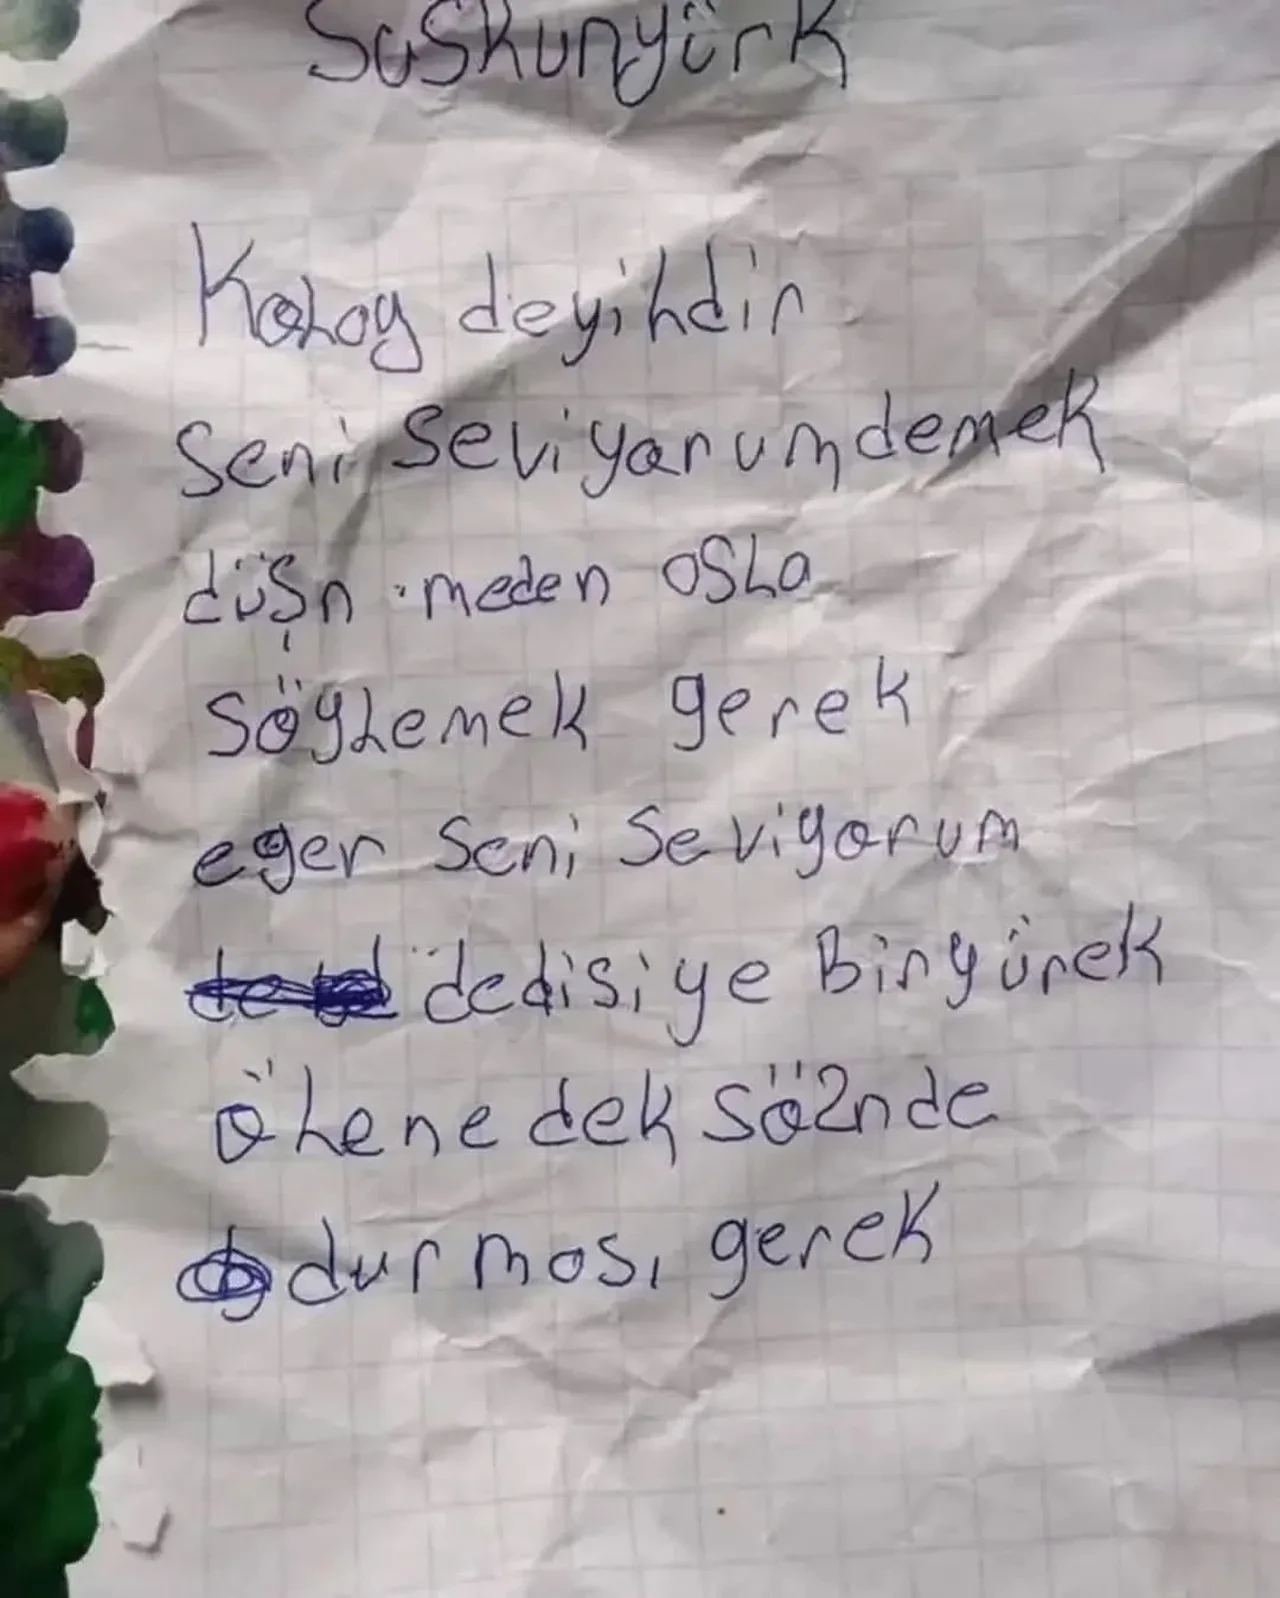 Suskunyürk
Kolay deyildir
Seni Seviyorumdemek
düşn meden osla
söylemek gerek
eger Seni Seviyorum
dedisiye Binyürek
ölene dek söznde
durması gerek